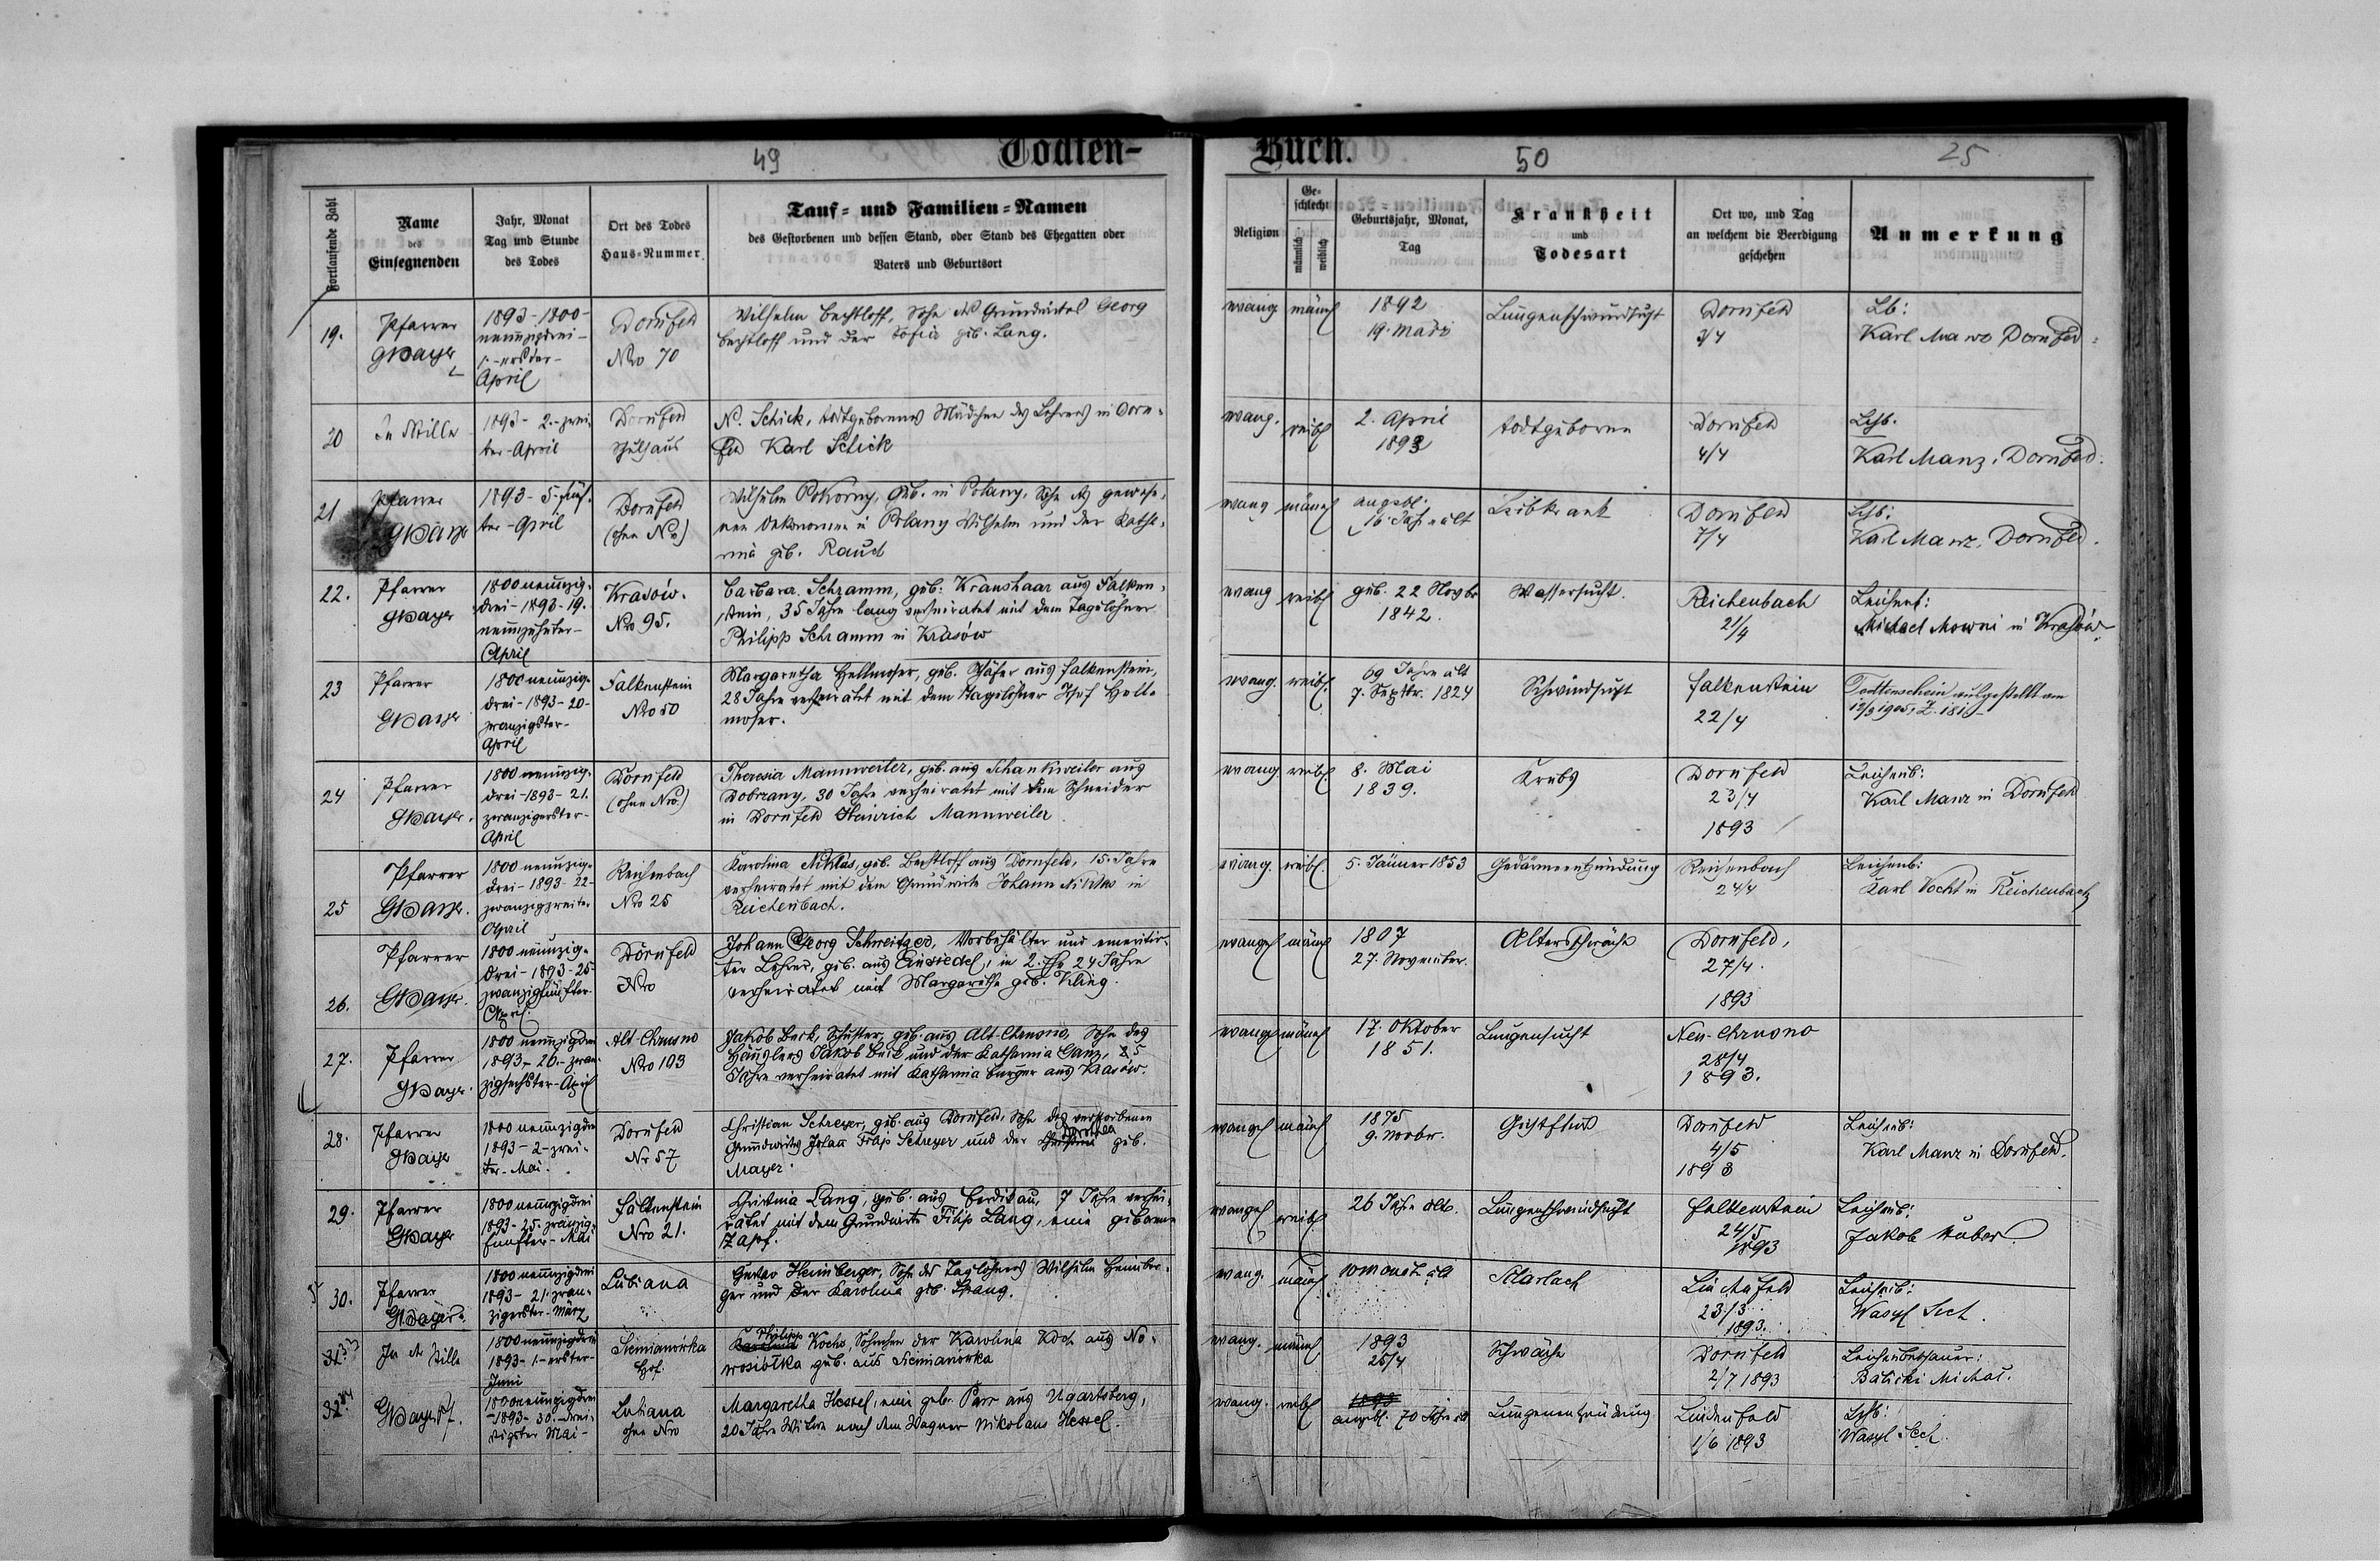 49
Todten-
Buch.
50
25
Fortlaufende Zahl
Name
des
Einsegnenden
Jahr, Monat
Tag und Stunde
des Todes
Ort des Todes
Haus-Nummer
Tauf- und Familien-Namen
des Gestorbenen und dessen Stand, oder Stand des Ehegatten oder
Vaters und Geburtsort
Religion
Ge-
schlecht
männlich
weiblich
Geburtsjahr, Monat,
Tag
Krankheit
und
Todesart
Ort wo, und Tag
an welchem die Beerdigung
geschehen
Anmerkung
19.
Pfarrer
GMayer
1893-1800-
neunzigdrei-
1.-erster-
April
Dornfeld
Nro 70
Wilhelm Bechtloff, Sohn des Grundwirtes Georg
Bechtloff und der Sofia geb. Lang.
evang.
männl
1892
19. März
Lungenschwindsucht
Dornfeld
3/4
Lb:
Karl Manz Dornfeld
20
In Stille
1893-2.-zwei-
ter-April
Dornfeld
Schulhaus
N. Schick, todtgeborenes Mädchen des Lehrers in Dorn-
feld Karl Schick
evang.
weibl
2. April
1893
todtgeboren
Dornfeld
4/4
Lchb.
Karl Manz, Dornfeld.
21
Pfarrer
GMayer
1893-5-fünf-
ter-April
Dornfeld
(ohne No)
Wilhelm Pokorny, geb. in Polany, Sohn des gewese-
nen Oekonomen in Polany Wilhelm und der Katha-
rina geb. Rauch
evang
männl
angebl.
16 Jahre alt
Leibkrank
Dornfeld
7/4
Lchb:
Karl Manz, Dornfeld.
22.
Pfarrer
GMayer
1800 neunzig-
drei-1893-19.
neunzehnter-
April
Krasów.
Nro 95.
Barbara Schramm, geb. Kranshaar aus Falken-
stein, 35 Jahre lang verheiratet mit dem Tagelöhner
Philipp Schramm in Krasów
evang
weibl
geb. 22 Novbr
1842.
Wassersucht.
Reichenbach
21/4
Leichenb:
Michael Mowni in Krasów.
23
Pfarrer
GMayer
1800 neunzig-
drei-1893-20-
zwanzigster-
April
Falkenstein
Nro 50
Margaretha Hellmoser, geb. Schäfer aus Falkenstein,
28 Jahre verheiratet mit dem Tagelöhner Josef Hell-
moser.
evang.
weibl.
69 Jahre alt
7. Septbr. 1824
Schwindsucht
Falkenstein
22/4
Todtenschein ausgestellt am
12/3 1905, Z. 181
24
Pfarrer
GMayer.
1800 neunzig-
drei-1893-21.
zwanzigerster-
April
Dornfeld
(ohne Nro.)
Theresia Mannweiler, geb. aus Schankweiler aus
Dobrzany, 30 Jahre verheiratet mit dem Schneider
in Dornfeld Heinrich Mannweiler.
evang
weibl.
8. Mai
1839.
Krebs
Dornfeld
23/4
1893
Leichenb:
Karl Manz in Dornfeld
25
Pfarrer
GMayer.
1800 neunzig-
drei-1893-22-
zwanzigzweiter
April
Reichenbach
Nro 25
Karolina Niklas, geb. Bechtloff aus Dornfeld, 15 Jahre
verheiratet mit dem Grundwirte Johann Niklas in
Reichenbach.
evang.
weibl.
5. Jänner 1853
Gedärmeentzündung
Reichenbach
24/4
Leichenb:
Karl Vocht in Reichenbach
26.
Pfarrer
GMayer.
1800 neunzig-
drei-1893-25-
zwanzigfünfter-
April.
Dornfeld
Nro
Johann Georg Schweitzer, Vorbehälter und emeritir-
ter Lehrer, geb. aus Einsiedel, in 2. Ehe 24 Jahre
verheiratet mit Margaretha geb. Kling.
evangel
männl
1807
27. November.
Altersschwäche
Dornfeld,
27/4.
1893
27.
Pfarrer
GMayer.
1800 neunzigdrei
1893-26.-zwan-
zigsechster-April
Alt-Chrusno
Nro 103
Jakob Beck, Schuster, geb. aus Alt-Chrusno, Sohn des
Häuslers Jakob Beck und der Katharina Ganz, 25
Jahre verheiratet mit Katharina Burger aus Krasów.
evangel
männl
17. Oktober
1851.
Lungensucht
Neu-Chrusno
28/4
1893.
28.
Pfarrer
GMayer
1800 neunzigdrei
1893-2-zwei-
ter-Mai.
Dornfeld
Nr 57
Christian Schreyer, geb. aus Dornfeld, Sohn des verstorbenen
Grundwirtes Johann Filip Schreyer und der Dorothea geb.
Mayer.
evangel
männl
1875
9. Novbr.
Dornfeld
4/5
1893
Leichenb:
Karl Manz in Dornfeld.
29.
Pfarrer
GMayer
1800 neunzigdrei
1893-25-zwanzig-
fünfter-Mai
Falkenstein
Nro 21.
Christina Lang, geb. aus Berdikau, 7 Jahre verhei-
ratet mit dem Grundwirte Filip Lang, eine geborene
Zapf.
evangel
weibl.
26 Jahre alt.
Lungenschwindsucht
Falkenstein
24/5
1893
Leichenb:
Jakob Huber.
30.
Pfarrer
GMayer.
1800 neunzigdrei
1893-21.zwan-
zigerster-März
Lubiana
Gustav Heimberger, Sohn des Tagelöhners Wilhelm Heimber-
ger und der Karolina geb. Spang.
evang.
männl.
10 Monat alt
Scharlach
Lindenfeld
23/3
1893.
Leichenb:
Wasyl Sech.
31.
33
In der Stille
1800 neunzigdrei
1893-1.-erster-
Juni
Siemianówka
Hof.
Philipp Kochs, Söhnchen der Karolina Koch aus No-
wosiolka geb. aus Siemianówka
evang.
männl.
1893
25/4
Schwäche
Dornfeld
2/7 1893
Leichenbeschauer:
Balicki Michal.
32.
34
GMayer Pf.
1800 neunzigdrei
-1893-30.-drei-
ssigster Mai-
Lubiana
ohne Nro
Margaretha Hessel, eine geb. Parr aus Ugartsberg,
20 Jahre Witwe nach dem Wagner Nikolaus Hessel.
evang.
weibl
1893
angebl. 70 Jahre alt
Lungenentzündung
Lindenfeld
1/6 1893
Lchb:
Wasyl Sech.